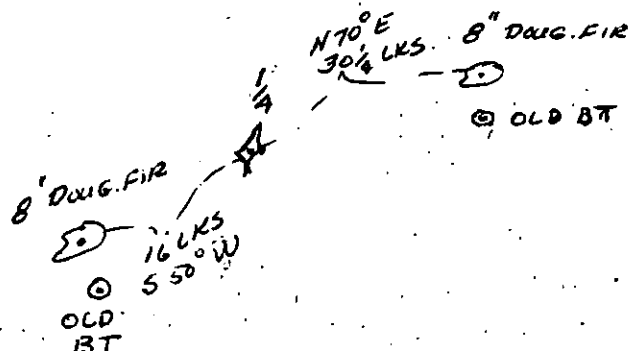 N 70° E
30 1/4 LKS.
8" DOUG. FIR
OLD BT
1/4
8" DOUG. FIR
16 LKS
S 50° W
OLD
BT